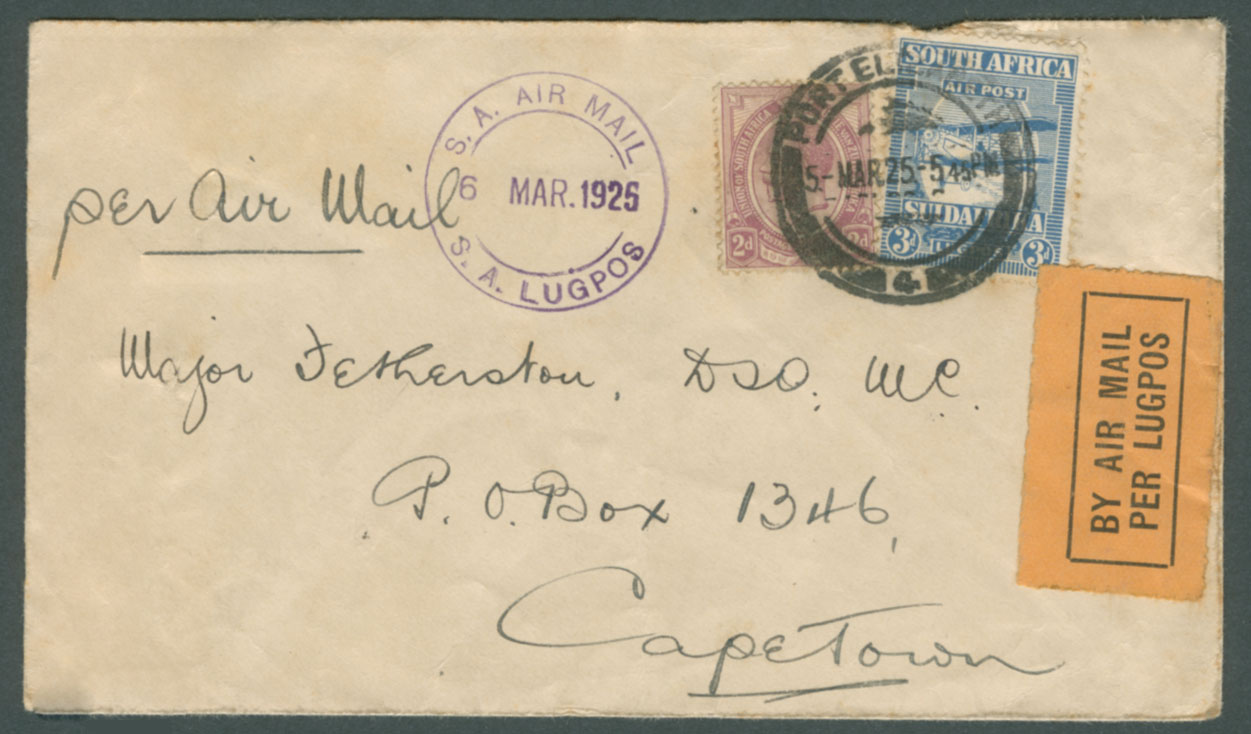 SOUTH AFRICA
AIR POST
SUIDAFRIKA
3d 3d
UNION OF SOUTH AFRICA
2d 2d
PORT ELIZABETH
5-MAR.25-5 45 PM
4
S. A. AIR MAIL
6 MAR. 1925
S. A. LUGPOS
per Air Mail
Major Fetherston, DSO, MC.
P.O. Box 1346,
Cape Town
BY AIR MAIL
PER LUGPOS